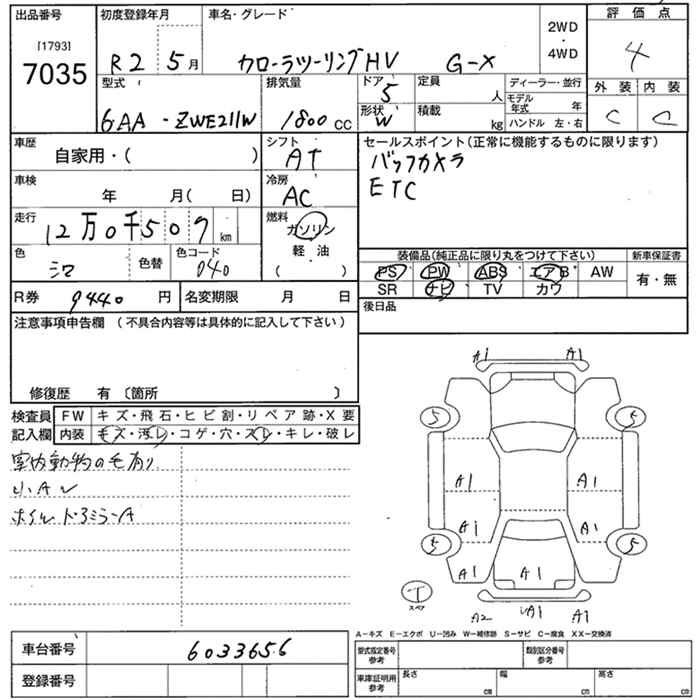 出品番号 初度登録年月 車名・グレード 2WD・4WD 評価点
[1793]
7035 R2 5月 カローラツーリングHV G-X 4
型式 排気量 ドア 定員 ディーラー・並行 外装 内装
6AA - ZWE211W 1800 CC 5 人 モデル年式 年 C C
形状 W 積載 kg ハンドル 左・右
車歴 シフト セールスポイント(正常に機能するものに限ります)
自家用・( ) AT バックカメラ
車検 冷房 ETC
年 月( 日) AC
走行 燃料
12万0千507km ガソリン
軽・油
( )
色 シロ 色替 色コード 040
装備品(純正品に限り丸をつけて下さい) 新車保証書
PS PW ABS エアB AW 有・無
SR ナビ TV カワ
R券 9440円 名変期限 月 日 後日品
注意事項申告欄 (不具合内容等は具体的に記入して下さい)
修復歴 有 〔箇所 〕
検査員 FW キズ・飛石・ヒビ割・リペア跡・X要
記入欄 内装 キズ・汚レ・コゲ・穴・スレ・キレ・破レ
室内動物の毛有り
ホイル ドアミラーA
A1 A1
5 5
A1 A1
A1 A1
5 5
A1 A1
T
スペア
A2 A1 A1
A-キズ E-エクボ U-凹み W-補修跡 S-サビ C-腐食 XX-交換済
車台番号 6033656 型式指定番号 参考 類別区分番号 参考
登録番号 車庫証明用 参考 長さ cm 幅 cm 高さ cm